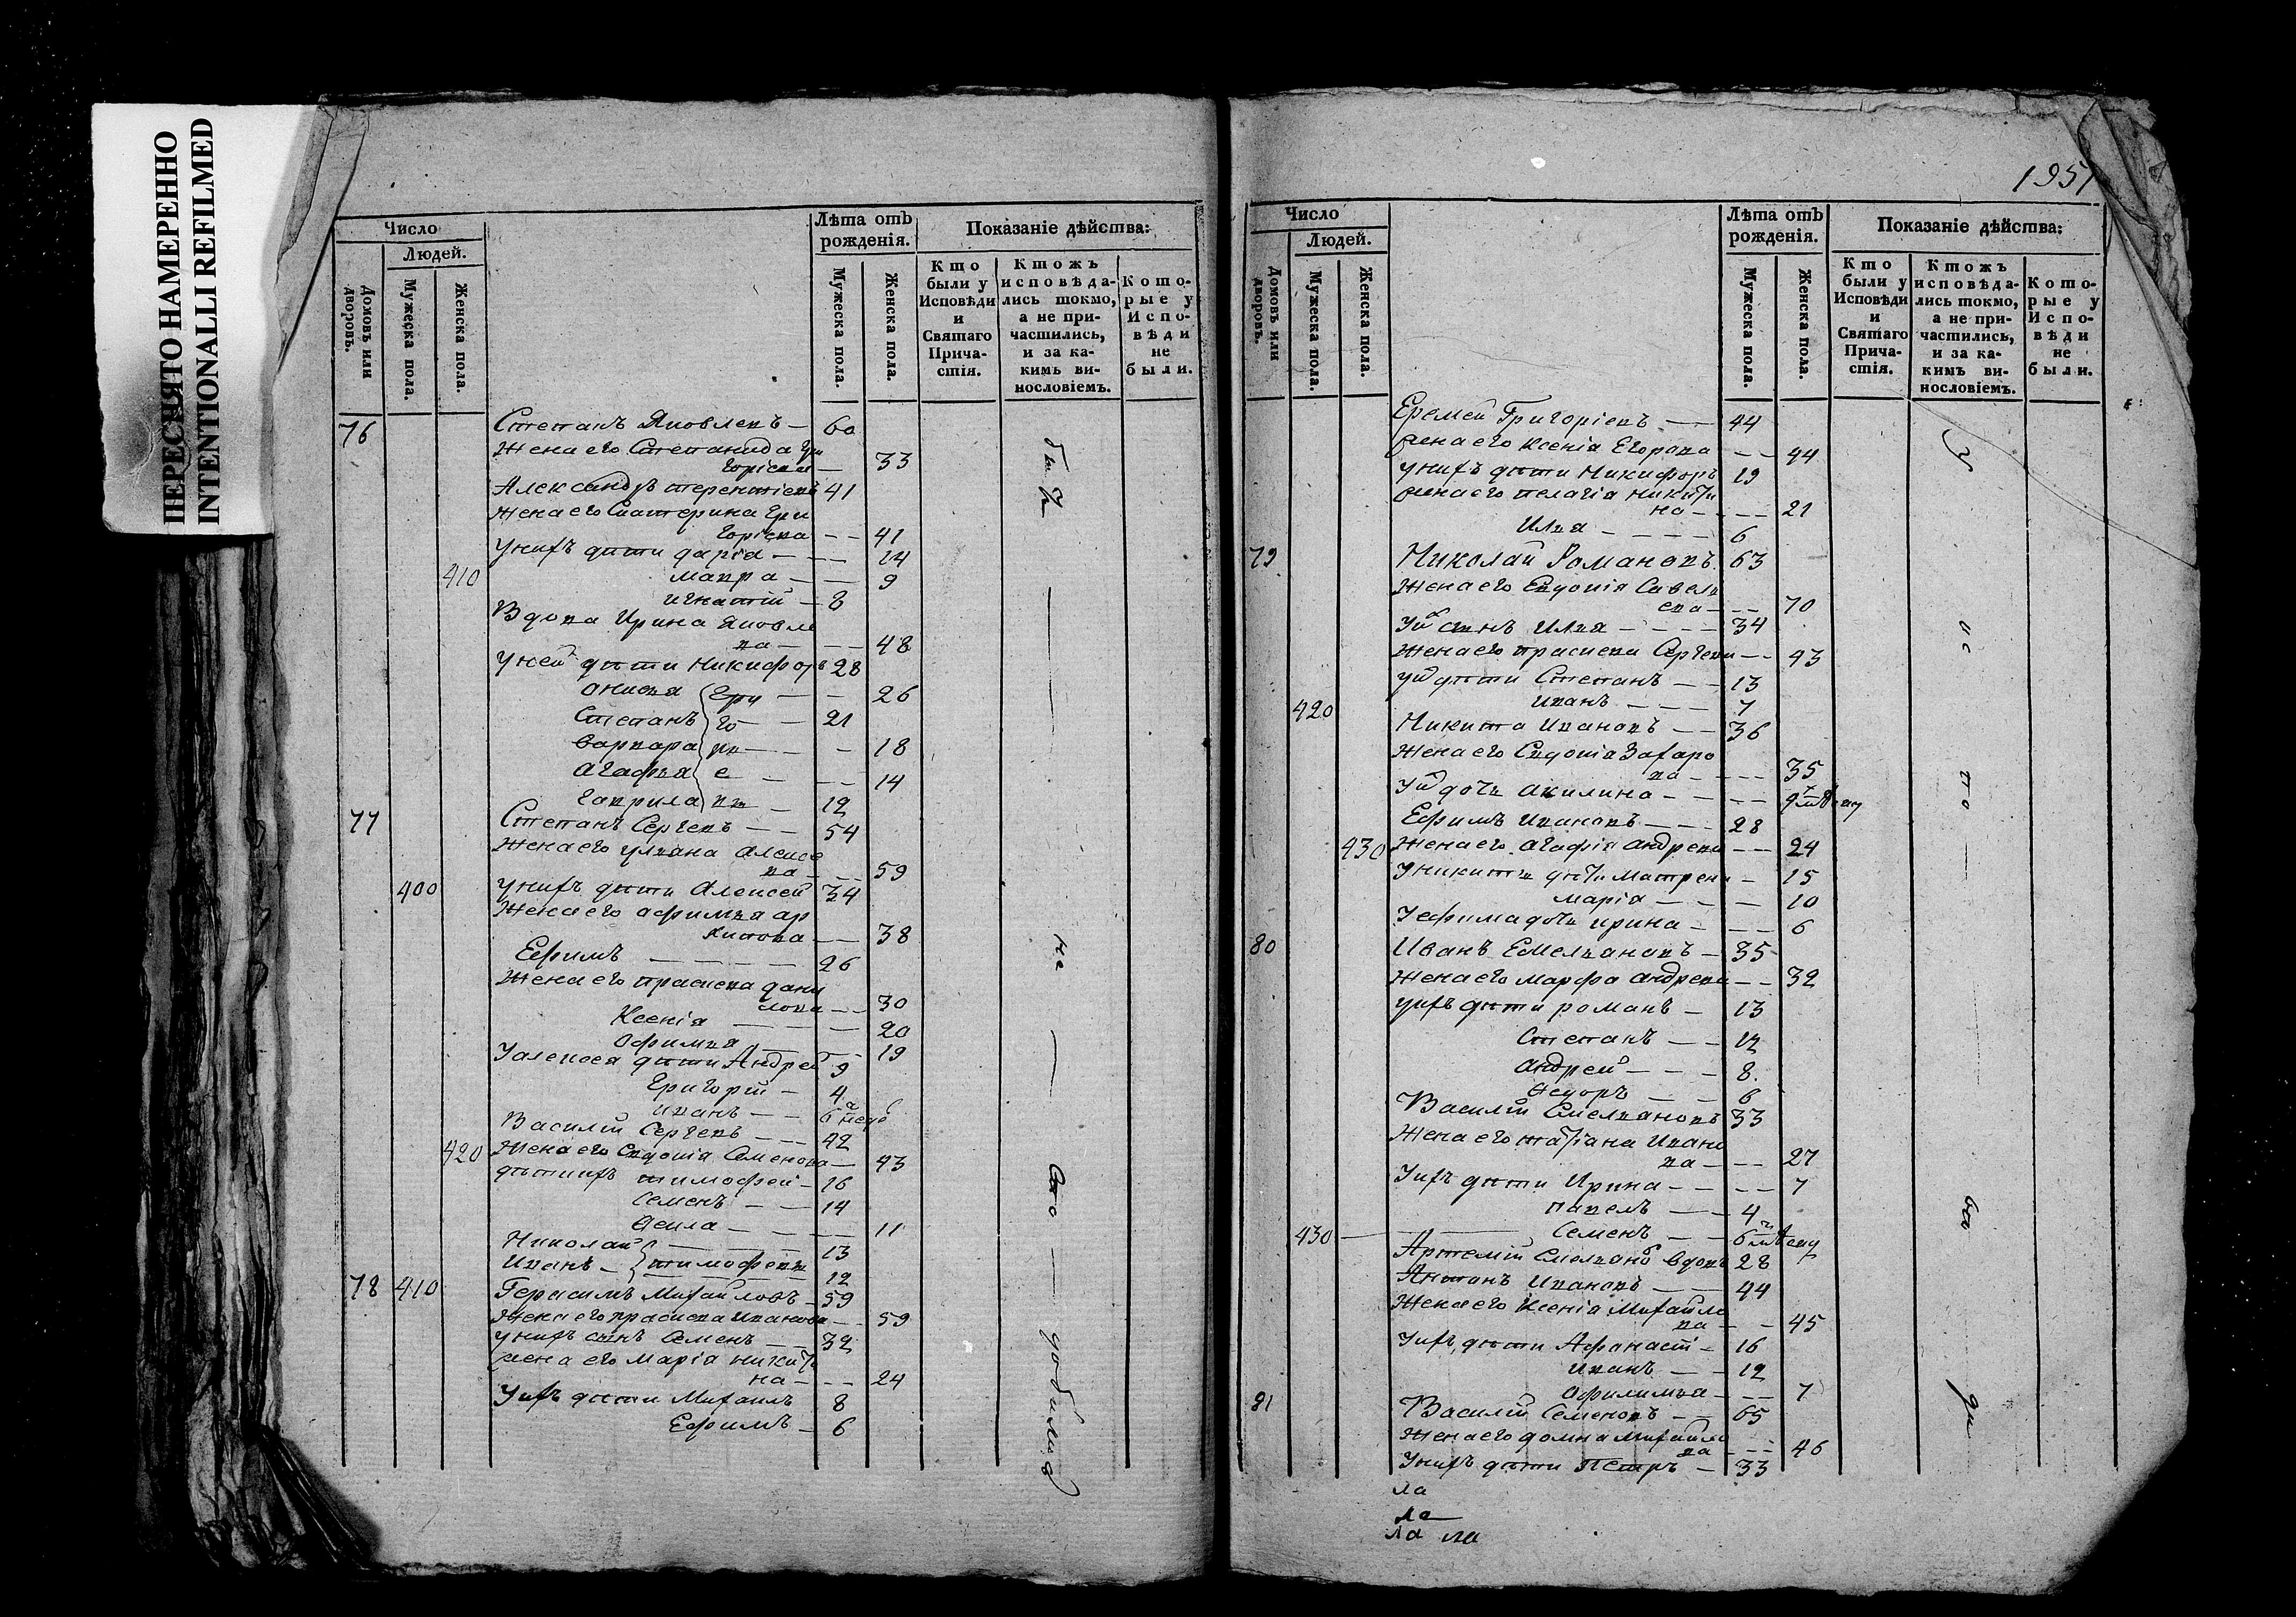 ПЕРЕСНЯТО НАМЕРЕННО
INTENTIONALLI REFILMED
Число
Людей.
Домовъ или дворовъ.
Мужеска пола.
Женска пола.
Лѣта отъ рожденія.
Мужеска пола.
Женска пола.
Показаніе дѣйства:
Кто были у Исповѣди и Святаго Причастія.
Ктожъ исповѣдались токмо, а не причастились, и за какимъ винословіемъ.
Которые у Исповѣди не были.
76 Степанъ Яковлевъ — 60
Жена его Степанида Гри
горіева — 33
Александръ терентіевъ 41
Жена его Катерина Гри
горіева — — 41
Унихъ дѣти дарія — — 14
410 мавра — — 9
игнатій — 8
Вдова Ирина Яковле
ва — — 48
Уней дѣти Никифоръ 28
анисья Гри — — 26
Степанъ го — — 21
Варвара рь — — 18
Агафья е — — 14
гаврила вы — 12
77 Степанъ Сергеевъ — — 54
Жена его ульяна Алексе
ва — — 59
400 Унихъ дѣти Алексей 34
Жена его афимья ар
хипова — — 38
Ефимъ — — — 26
Жена его прасковья дани
лова — — 30
Ксенія — — 20
Офимья — — 19
У алексея дѣти Андрей 9
Григорій — 4
иванъ — — 6 недѣ
Василій Сергевъ — — 42
420 Жена его Евдокія Семенова — 43
дѣти ихъ тимофей — 16
Семенъ — — 14
— — 11
Николай — 13
Иванъ — тимофеевы 12
78 410 Герасимъ Михайловъ — 59
Жена его прасковья Иванова — — 59
Унихъ сынъ Семенъ — — 32
жена его Марія никити
на — — 24
Уихъ дѣти Михаилъ 8
Ефимъ — 6
1951
Число
Людей.
Домовъ или дворовъ.
Мужеска пола.
Женска пола.
Лѣта отъ рожденія.
Мужеска пола.
Женска пола.
Показаніе дѣйства:
Кто были у Исповѣди и Святаго Причастія.
Ктожъ исповѣдались токмо, а не причастились, и за какимъ винословіемъ.
Которые у Исповѣди не были.
Еремей Григоріевъ — 44
жена его Ксенія Егорова — — 44
Унихъ дѣти Никифоръ 19
жена его пелагія никити
на — — 21
Илья — — — 6
79 Николай Романовъ 63
Жена его Евдокія Савель
ева — — 70
сынъ Илья — — — 34
Жена его прасковья Сергеева — — 43
дѣти Степанъ — — 13
420 иванъ — — — 7
Никита Ивановъ — — 36
Жена его Евдокія Захаро
ва — — 35
дочь Акилина — — —
Ефимъ Ивановъ — — 28
430 Жена его агафія андреева — — 24
Уникиты дѣти Матрена — 15
марія — — — 10
Уефима дочь ирина — — — 6
80 Иванъ Емельяновъ — 35
Жена его марфа андреева — — 32
уихъ дѣти романъ — 13
Степанъ — — 12
Андрей — — — 8
Ѳедоръ — — 6
Василій Емельяновъ 33
Жена его татіана Ивано
ва — — 27
Уихъ дѣти Ирина — — — 7
павелъ — — 4
430 Семенъ — —
Артемій Емельяновъ вдовъ 28
Антонъ Ивановъ — — 44
Жена его Ксенія Михайло
ва — — 45
Уихъ дѣти Афанасій — 16
иванъ — — 12
— — 7
81 Василій Семеновъ — 65
Жена его домна Михайло
ва — — 46
Унихъ дѣти Петръ — 33
ла
ла
ла ла